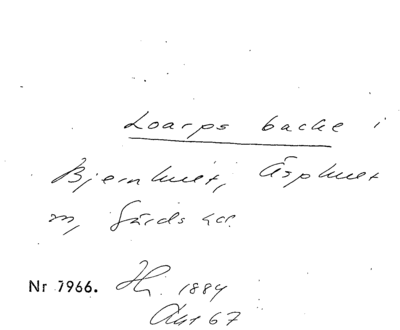 Loarps backe i
Bjernhult, Äsphult
m, Gärds hd.
Nr 7966. 1884
67